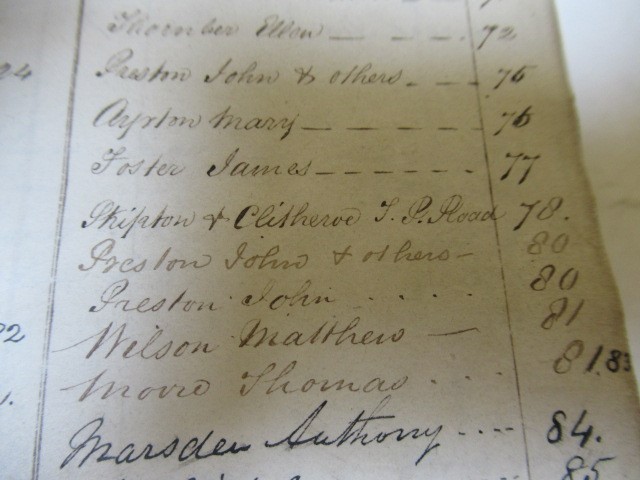 Thornber Ellen — — - - 72
24
Preston John & others - - - 75
Ayrton Mary — — — — — 76
Foster James — — - - - - 77
Skipton & Clitheroe T. P. Road 78.
Preston John & others — 80
Preston John . . . . 80
82 Wilson Matthew — 81
Moore Thomas . . . 81.83
Marsden Anthony - - - - 84.
85